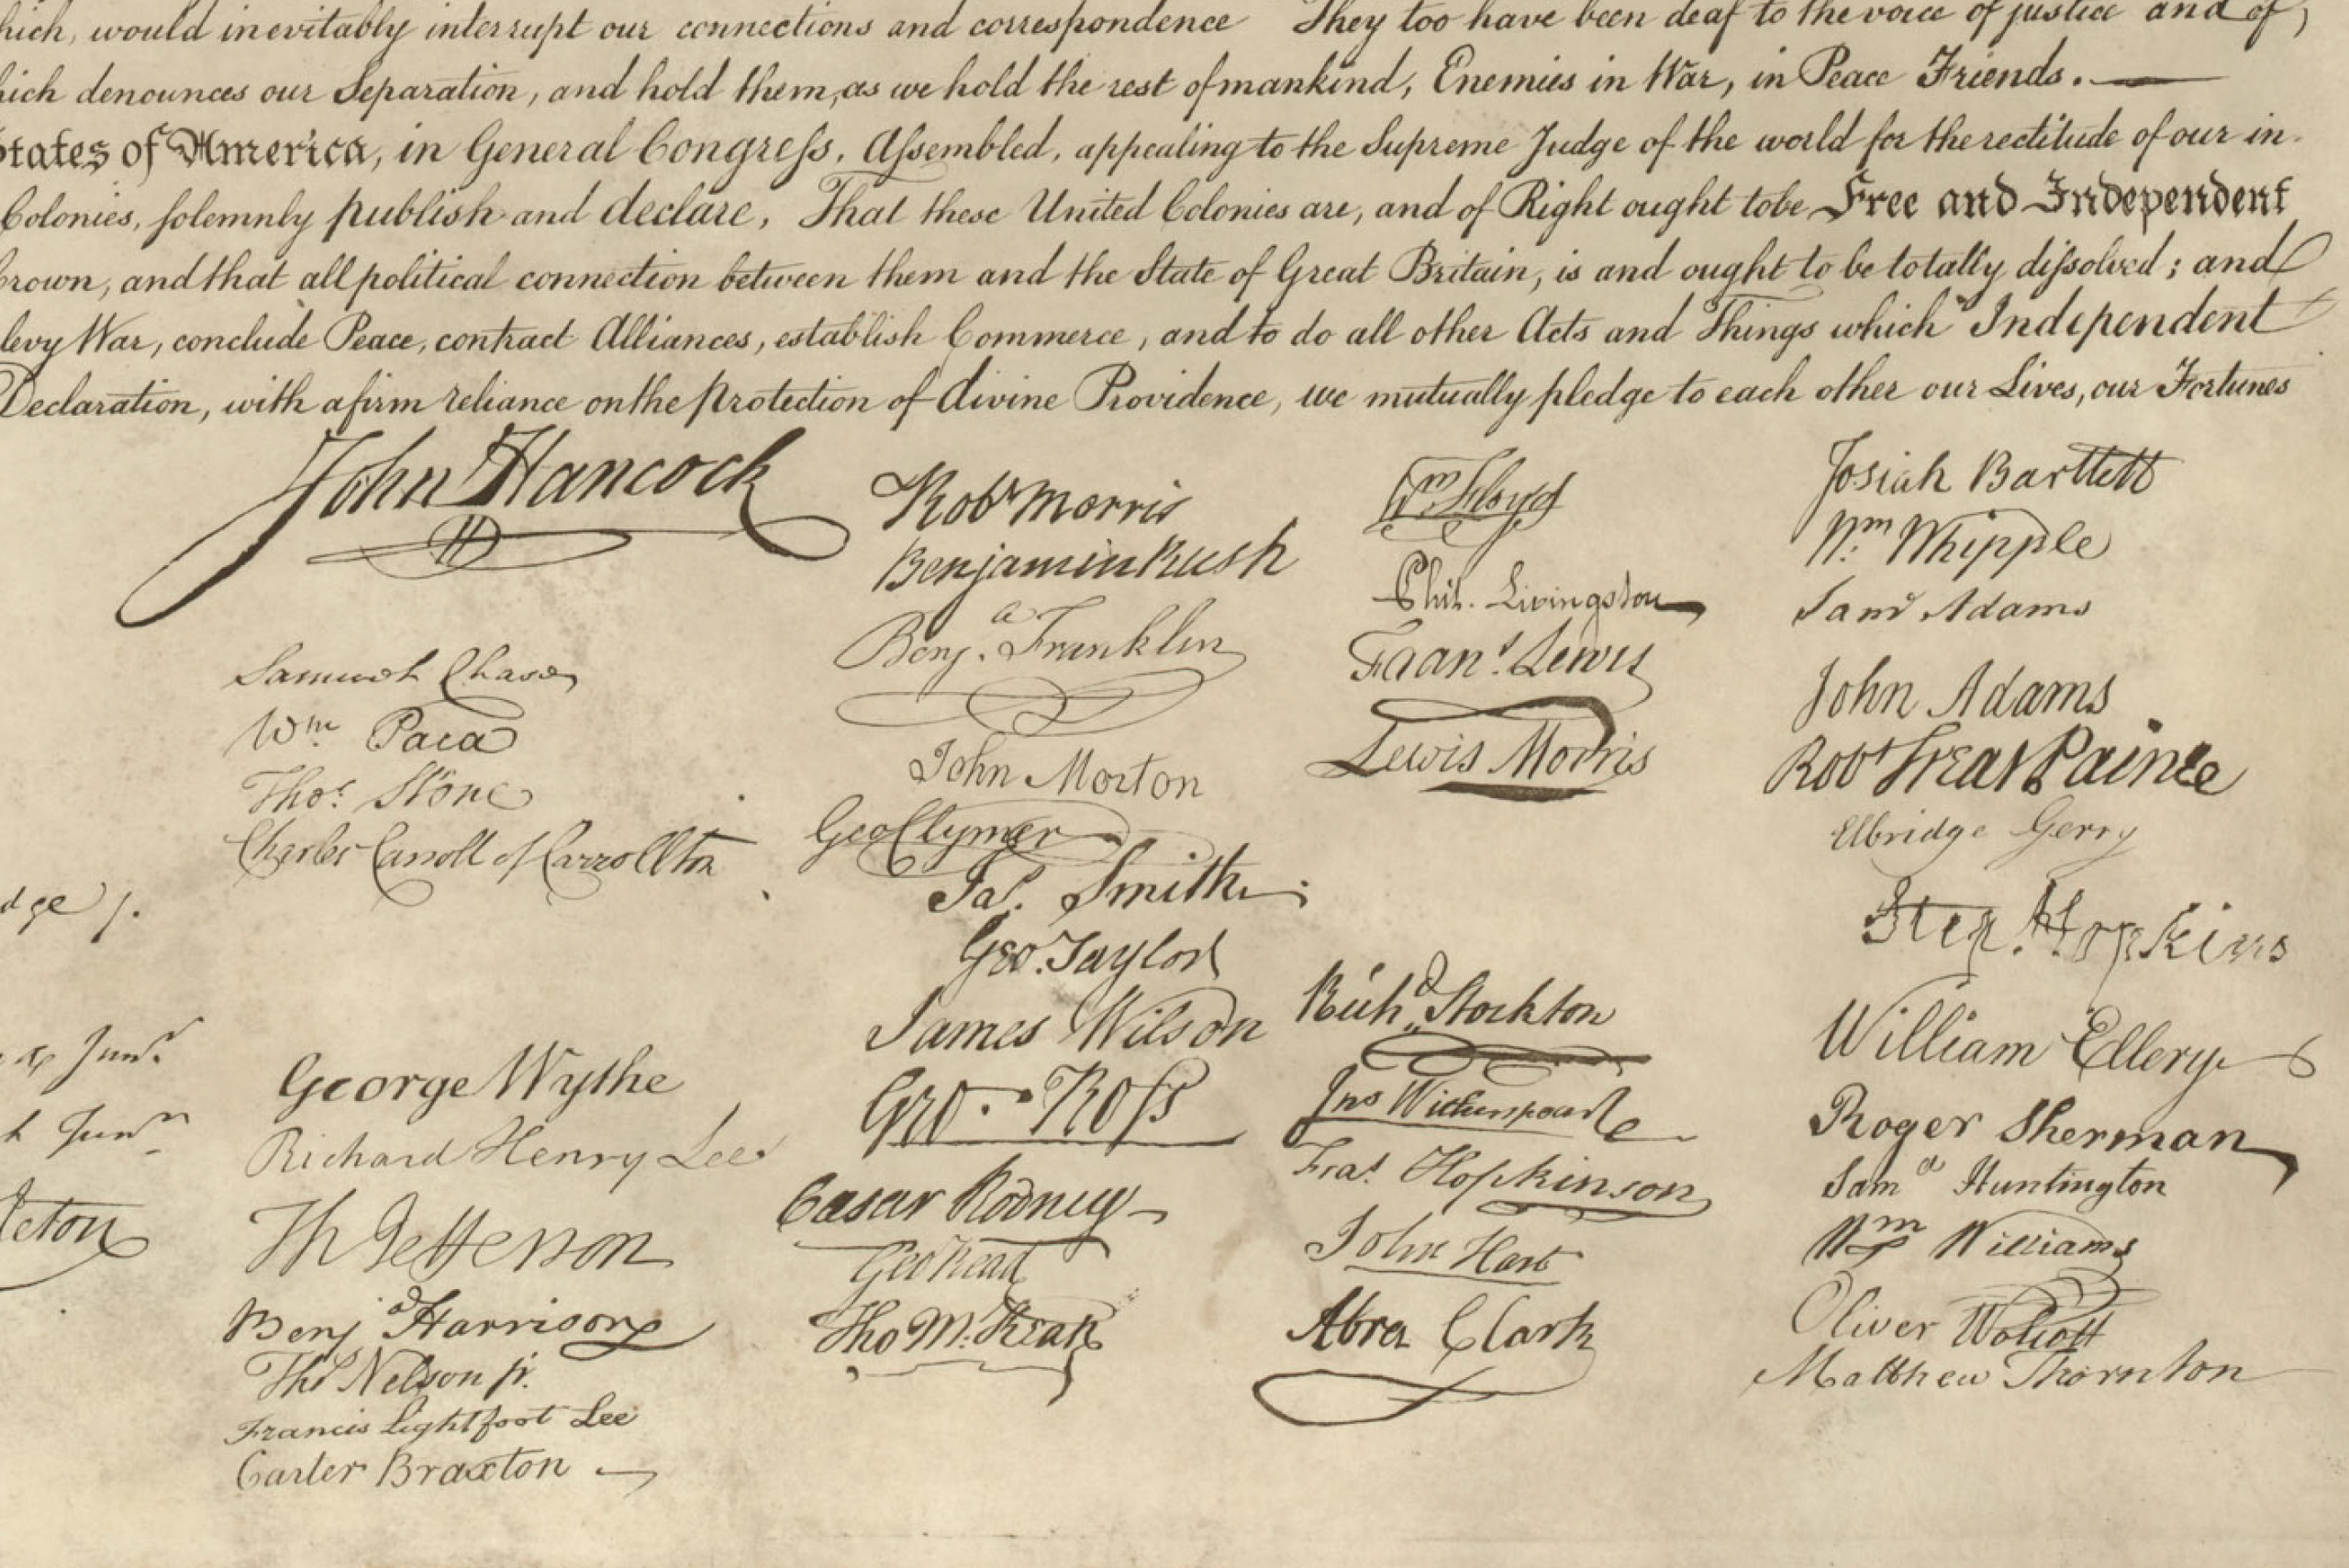 hich, would inevitably interrupt our connections and correspondence They too have been deaf to the voice of justice and of
hich denounces our Separation, and hold them, as we hold the rest of mankind, Enemies in War, in Peace Friends. —
States of America, in General Congreſs, Aſsembled, appealing to the Supreme Judge of the world for the rectitude of our in
Colonies, solemnly publish and declare, That these United Colonies are, and of Right ought to be Free and Independent
Crown, and that all political connection between them and the State of Great Britain, is and ought to be totally diſsolved; and
levy War, conclude Peace, contract Alliances, establish Commerce, and to do all other Acts and Things which Independent
Declaration, with a firm reliance on the protection of divine Providence, we mutually pledge to each other our Lives, our Fortunes
John Hancock
Samuel Chase
Wm. Paca
Thos. Stone
Charles Carroll of Carrollton
George Wythe
Richard Henry Lee
Th Jefferson
Benja Harrison
Thos Nelson jr.
Francis Lightfoot Lee
Carter Braxton
Robt Morris
Benjamin Rush
Benja. Franklin
John Morton
Geo Clymer
Jas. Smith
Geo. Taylor
James Wilson
Geo. Roſs
Caesar Rodney
Geo Read
Tho M:Kean
Wm Floyd
Phil. Livingston
Frans. Lewis
Lewis Morris
Richd. Stockton
Jno Witherspoon
Fras. Hopkinson
John Hart
Abra Clark
Josiah Bartlett
Wm: Whipple
Saml Adams
John Adams
Robt Treat Paine
Elbridge Gerry
Step. Hopkins
William Ellery
Roger Sherman
Samel Huntington
Wm Williams
Oliver Wolcott
Matthew Thornton
dge /.
Junr.
Junr.
leton